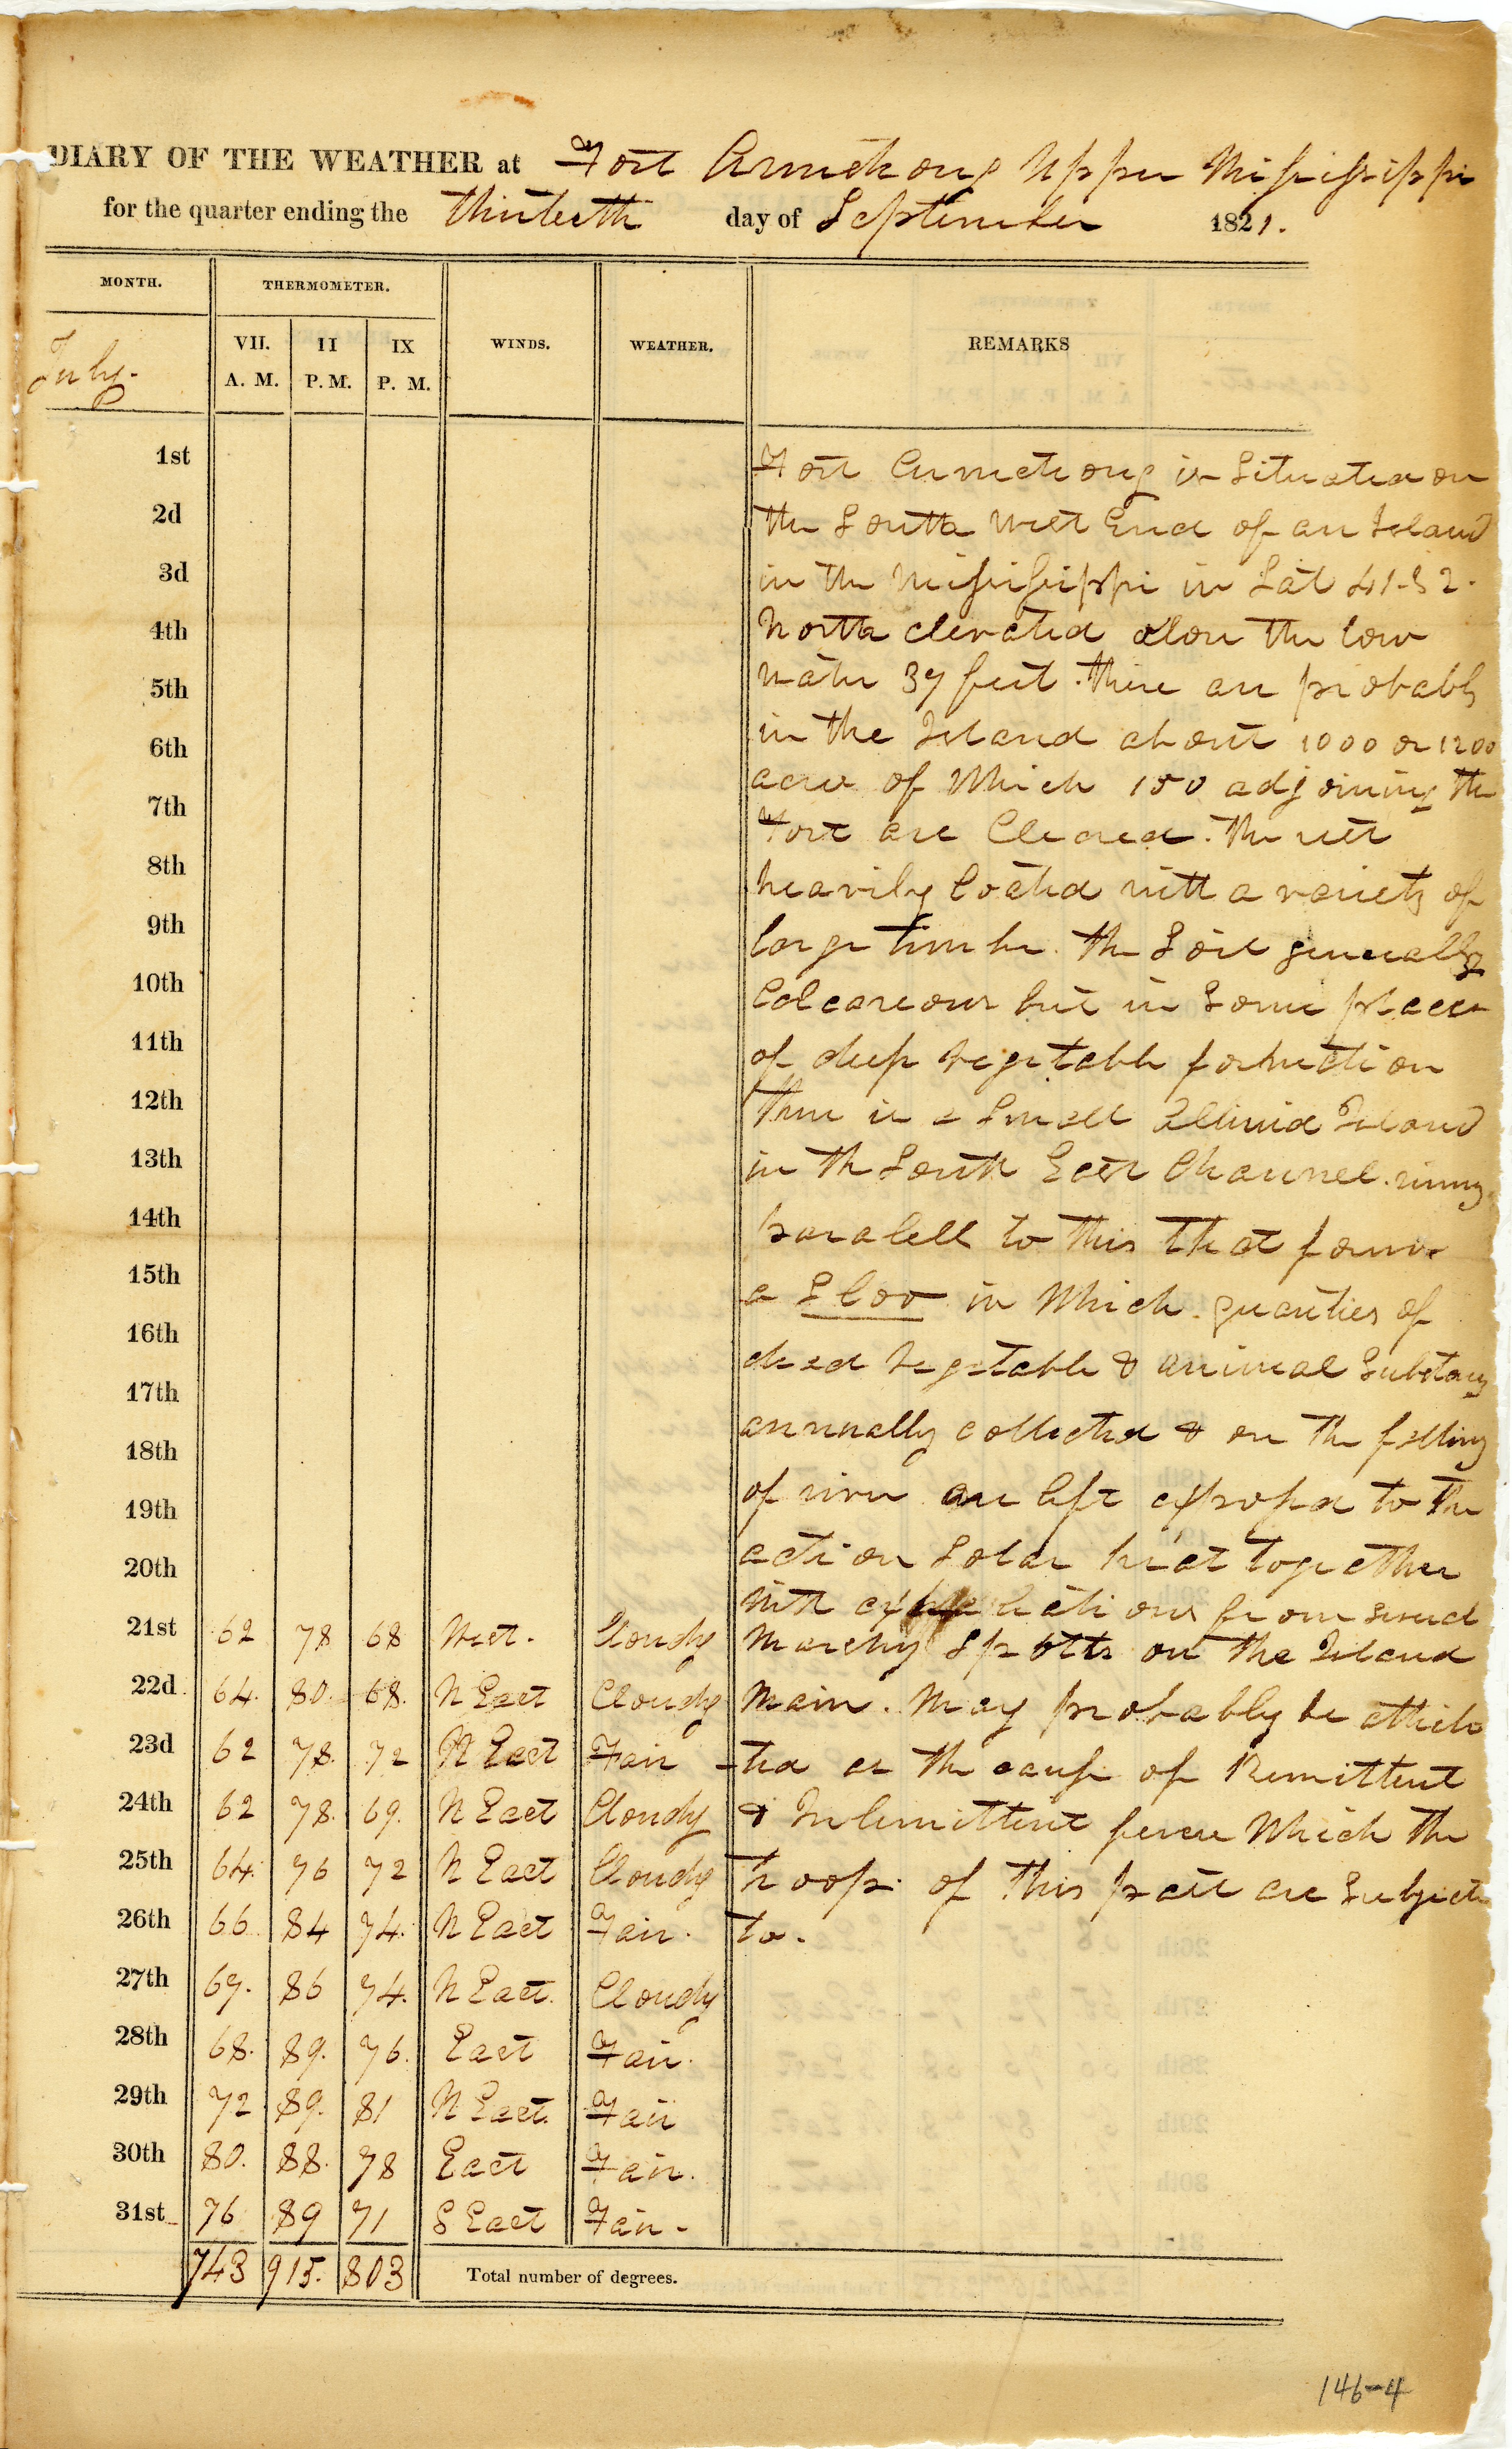 DIARY OF THE WEATHER at Fort Armstrong Upper Mississippi
for the quarter ending the thirteeth day of September 1821.
MONTH. THERMOMETER. WINDS. WEATHER. REMARKS
July. VII. A. M. II P. M. IX P. M.
1st Fort Armstrong is Situated on
2d the South West End of an Island
3d in the Mississippi in Lat 41-32.
4th North elevated above the low
5th water 37 feet. there are probably
6th in the Island about 1000 or 1200
7th acres of Which 150 adjoining the
Fort are Cleared. the rest
8th heavily Coated with a variety of
9th large timber. the Soil generally
10th Calcareous but in Some places
11th of deep vegetable formation
12th There is a Small Alluvial Island
13th in the South East Channel. runing
14th paralell to this that forms
15th a Sloo in Which quanties of
16th dead vegetable & animal Substans
17th annually collected & on the falling
18th of river are left exposed to the
19th action Solar heat together
20th with exhalations from several
21st 62 78 68 West. Cloudy Marshy Spotts on the Island
22d 64. 80. 68. N East Cloudy Main. May probably be attribu
23d 62 78. 72 N East Fair -ted as the cause of Remittent
24th 62 78. 69. N East Cloudy & Intermittent fever Which the
25th 64. 76 72 N East Cloudy troops of this post are Subject
26th 66. 84 74. N East Fair. to.
27th 67. 86 74. N East. Cloudy
28th 68. 89. 76. East Fair.
29th 72 89. 81 N East. Fair
30th 80. 88. 78 East Fair.
31st 76 89 71 S East Fair-
743 915. 803 Total number of degrees.
146-4